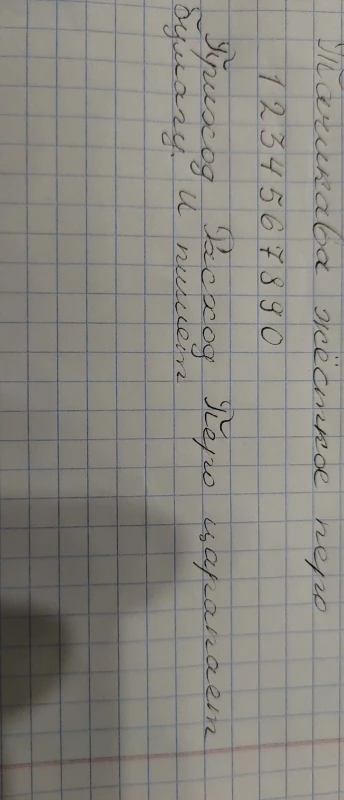 Тачикава жёсткое перо
1 2 3 4 5 6 7 8 9 0
Приход Расход Перо царапает
бумагу. И пишет